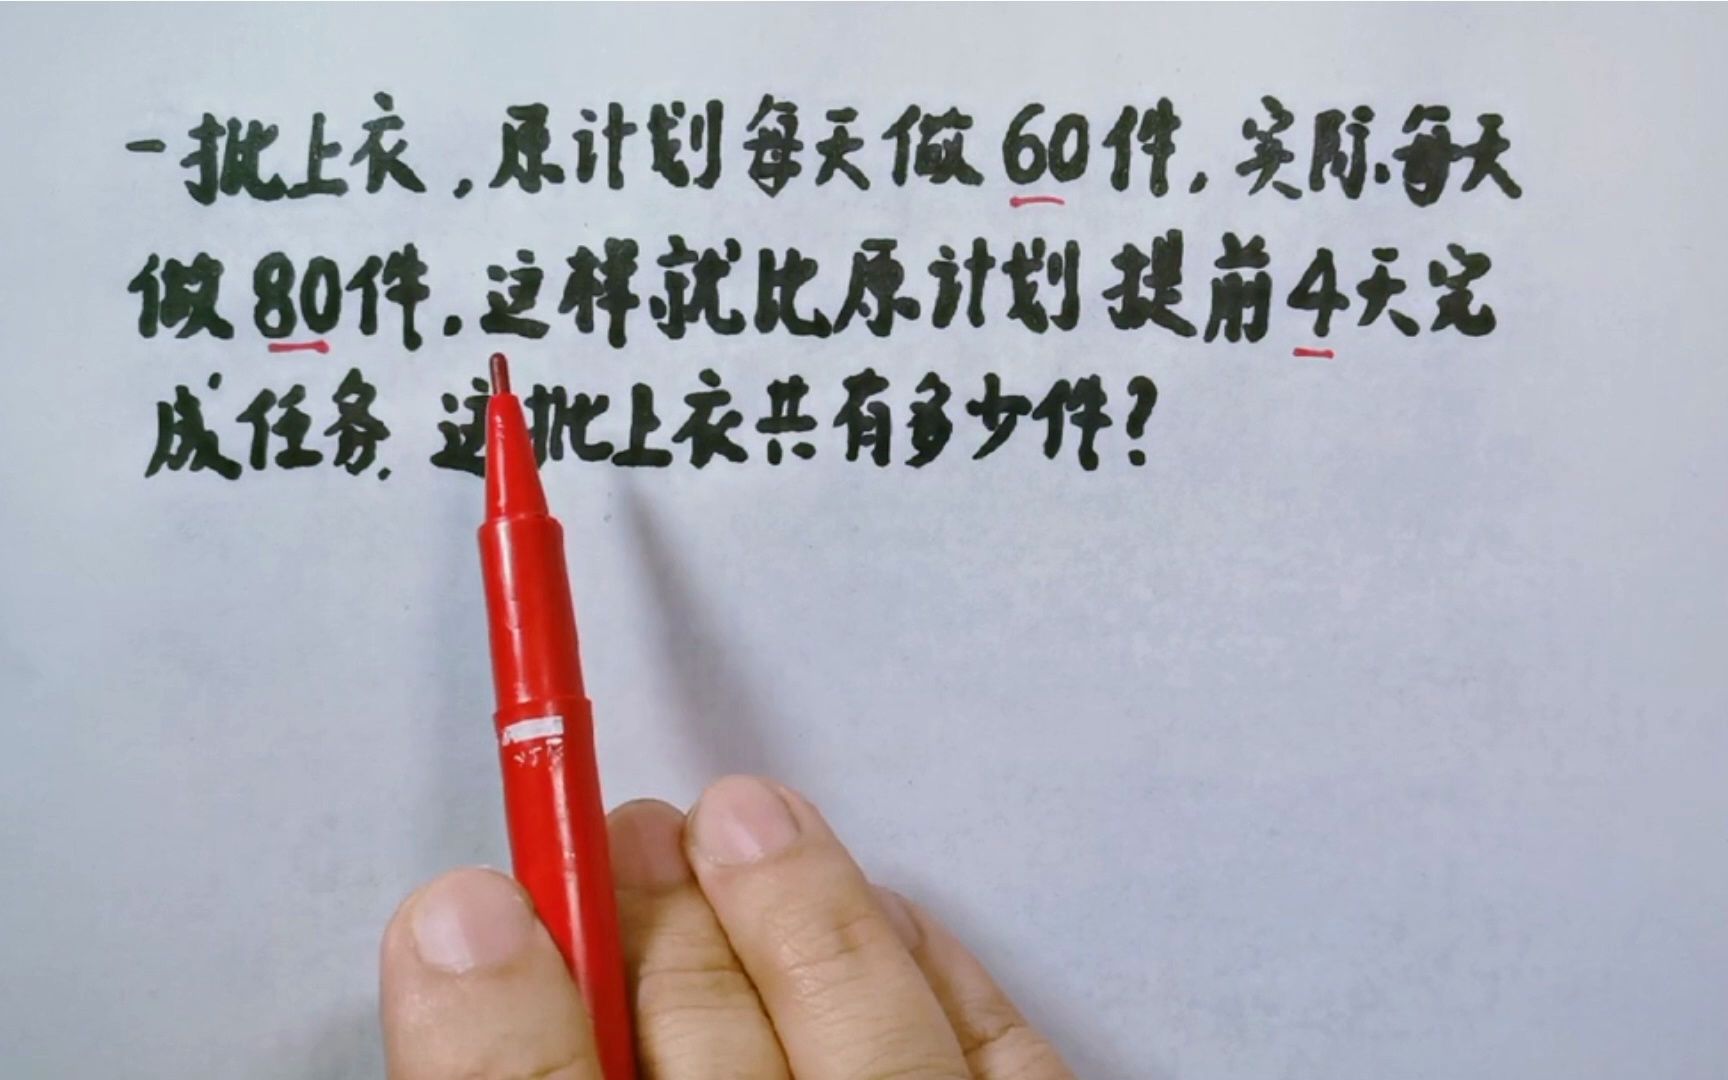 一批上衣，原计划每天做60件，实际每天
做80件，这样就比原计划提前4天完
成任务.这批上衣共有多少件？